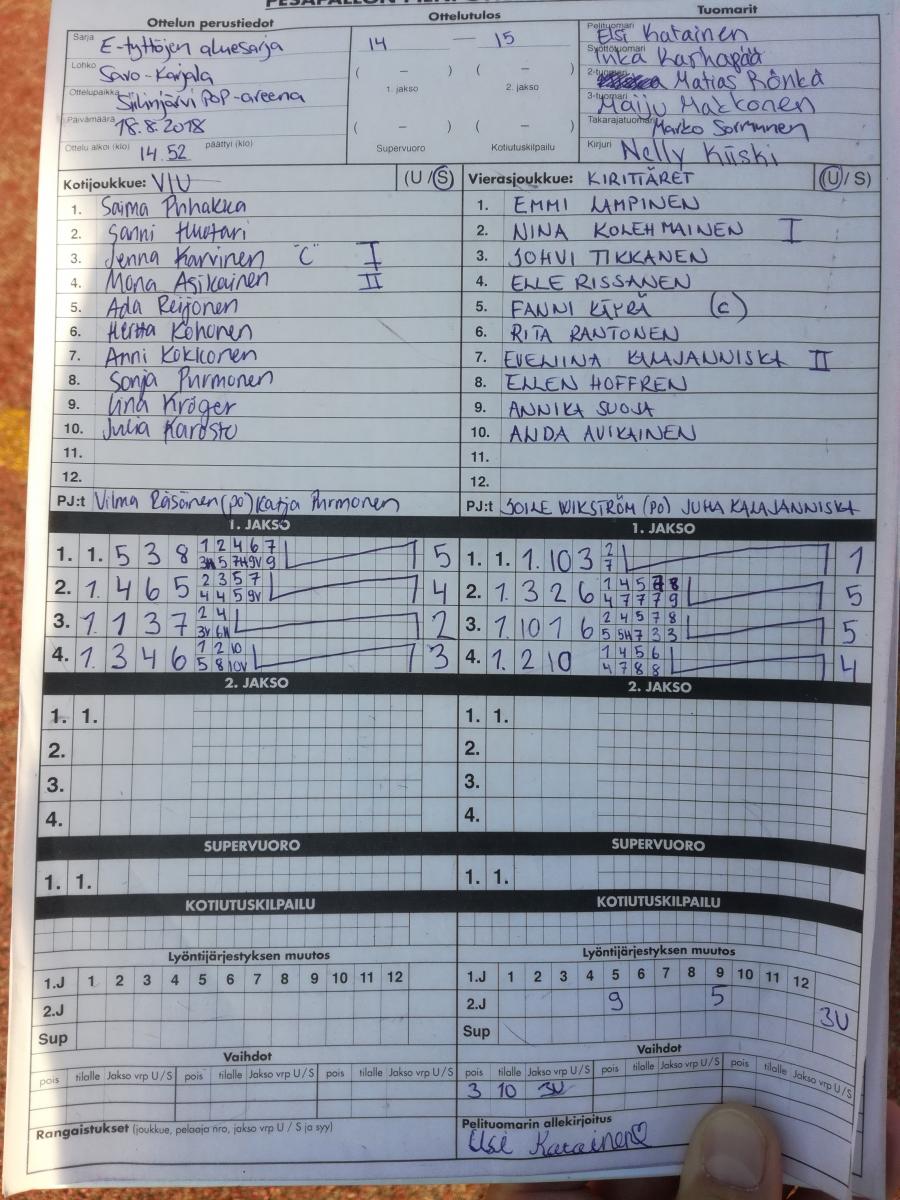 Ottelun perustiedot
Sarja E-tyttöjen aluesarja
Lohko Savo-Karjala
Ottelupaikka Siilinjärvi POP-areena
Päivämäärä 18.8.2018
Ottelu alkoi (klo) 14.52 päättyi (klo)
Ottelutulos
14 — 15
( – ) ( – )
1. jakso 2. jakso
( – ) ( – )
Supervuoro Kotiutuskilpailu
Tuomarit
Pelituomari Elsi Katainen
Syöttötuomari Inka Karhapää
2-tuomari Matias Rönkä
3-tuomari Maiju Makkonen
Takarajatuomari Marko Sormunen
Kirjuri Nelly Kiiski
Kotijoukkue: VIU (U/S)
1. Saima Puhakka
2. Sanni Huotari
3. Jenna Karvinen "C" I
4. Mona Asikainen II
5. Ada Reijonen
6. Hertta Kohonen
7. Anni Kokkonen
8. Sonja Purmonen
9. Iina Kröger
10. Julia Karosto
11.
12.
PJ:t Vilma Räsänen (po) Katja Purmonen
Vierasjoukkue: KIRITTÄRET (U/S)
1. EMMI LAMPINEN
2. NINA KOLEHMAINEN I
3. JOHVI TIKKANEN
4. ELLE RISSANEN
5. FANNI KÄYRÄ (c)
6. RITA RANTONEN
7. EVELIINA KALAJANNISKA II
8. ELLEN HOFFREN
9. ANNIKA SUOJA
10. ANDA AVIKAINEN
11.
12.
PJ:t WIKSTRÖM (PO) JUHA KALAJANNISKA
1. JAKSO
1. 1. 5 3 8 1 2 4 6 7 5
2. 1. 4 6 5 2 3 5 7 4
4 4 5 9V
3. 1. 1 3 7 2 4 2
4. 1. 3 4 6 1 2 10 3
5 8 10V
1. JAKSO
1. 1. 1. 10 3 2 1
7
2. 1. 3 2 6 1 4 5 7 8 5
4 7 7 7 9
3. 1. 10 1 6 2 4 5 7 8 5
5 5H 7 3 3
4. 1. 2 10 1 4 5 6 4
4 7 8 8
2. JAKSO
1. 1.
2.
3.
4.
2. JAKSO
1. 1.
2.
3.
4.
SUPERVUORO
1. 1.
SUPERVUORO
1. 1.
KOTIUTUSKILPAILU
KOTIUTUSKILPAILU
Lyöntijärjestyksen muutos
1.J 1 2 3 4 5 6 7 8 9 10 11 12
2.J
Sup
Lyöntijärjestyksen muutos
1.J 1 2 3 4 5 6 7 8 9 10 11 12
2.J 9 5 3U
Sup
Vaihdot
pois tilalle Jakso vrp U/S pois tilalle Jakso vrp U/S pois tilalle Jakso vrp U/S
Vaihdot
pois tilalle Jakso vrp U/S pois tilalle Jakso vrp U/S pois tilalle Jakso vrp U/S
3 10 3U
Rangaistukset (joukkue, pelaaja nro, jakso vrp U / S ja syy)
Pelituomarin allekirjoitus
Elsi Katainen